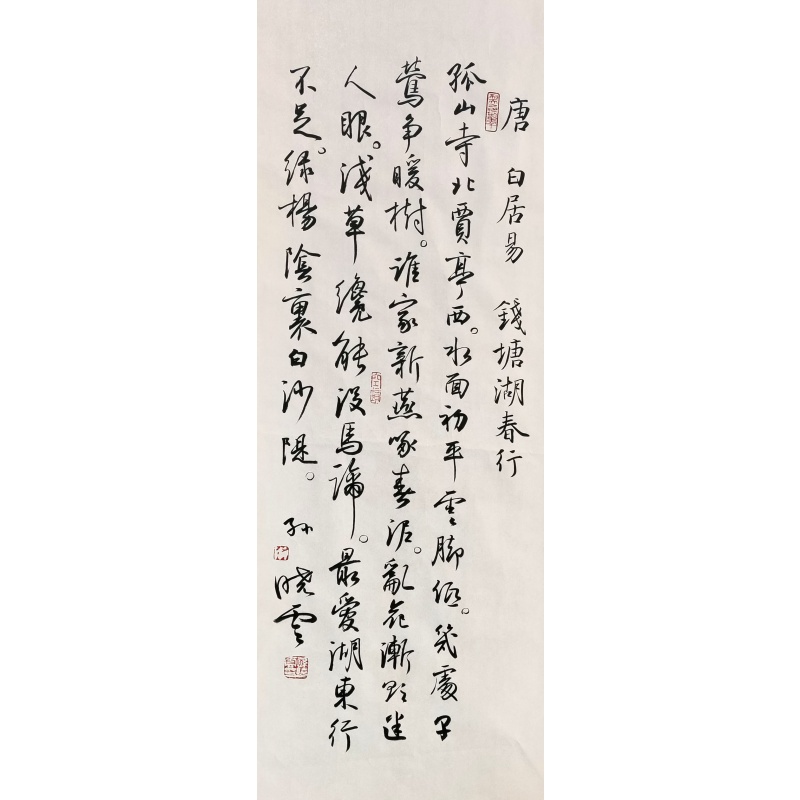 唐 白居易 錢塘湖春行
孤山寺北賈亭西。水面初平雲脚低。幾處早
鶯争暖樹。誰家新燕啄春泥。亂花漸欲迷
人眼。淺草纔能没馬蹄。最愛湖東行
不足。緑楊陰裏白沙隄。 孫曉雲